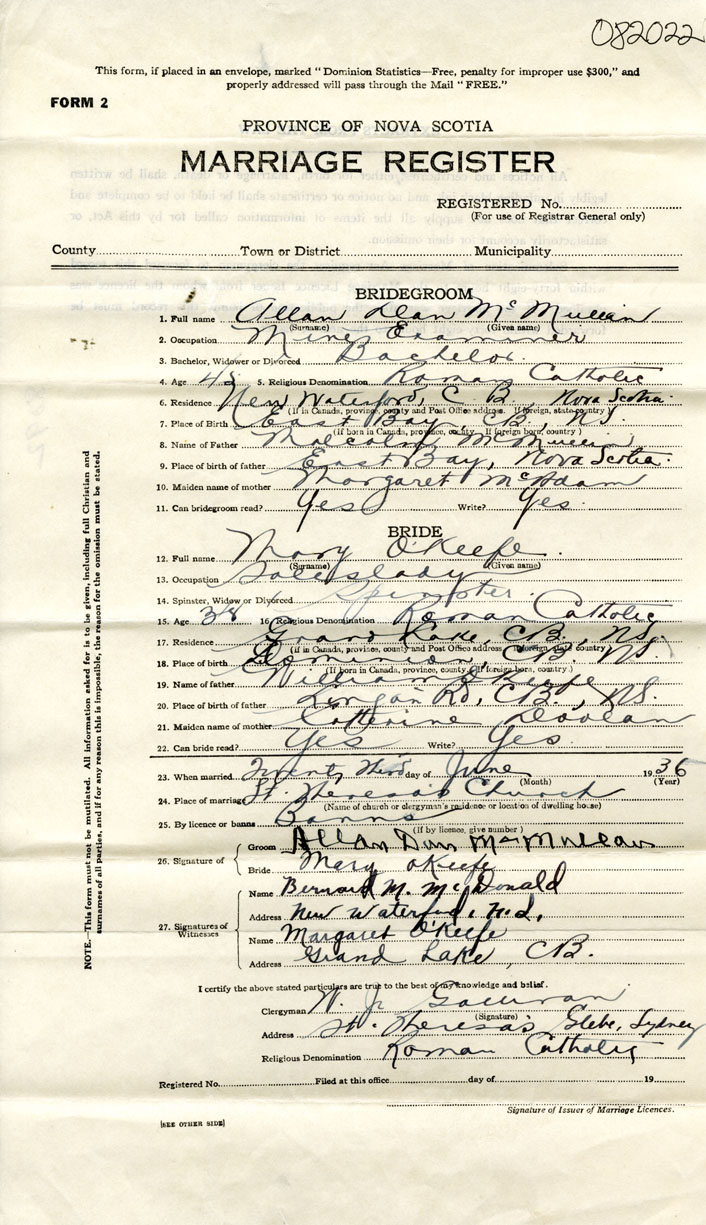 082022
This form, if placed in an envelope, marked "Dominion Statistics—Free, penalty for improper use $300," and
properly addressed will pass through the Mail "FREE."
FORM 2
PROVINCE OF NOVA SCOTIA
MARRIAGE REGISTER
REGISTERED No.
(For use of Registrar General only)
County Town or District Municipality
BRIDEGROOM
1. Full name Allan Dan McMullin
(Surname) (Given name)
2. Occupation Mine Examiner
3. Bachelor, Widower or Divorced Bachelor
4. Age 48 5. Religious Denomination Roman Catholic
6. Residence New Waterford, C B, Nova Scotia
(If in Canada, province, county and Post Office address. If foreign, state country)
7. Place of Birth East Bay, C.B. N.S.
(If born in Canada, province, county. If foreign born, country)
8. Name of Father Malcolm McMullin
9. Place of birth of father East Bay, Nova Scotia
10. Maiden name of mother Margaret McAdam
11. Can bridegroom read? Yes Write? Yes
BRIDE
12. Full name Mary O'Keefe
(Surname) (Given name)
13. Occupation Saleslady
14. Spinster, Widow or Divorced Spinster
15. Age 38 16. Religious Denomination Roman Catholic
17. Residence Grand Lake, C.B., N.S.
(if in Canada, province, county and Post Office address. If foreign, state country)
18. Place of birth Dominion, C.B. N.S.
(If born in Canada, province, county. If foreign born, country)
19. Name of father William O'Keefe
20. Place of birth of father Lingan Rd, C.B., N.S.
21. Maiden name of mother Catherine
22. Can bride read? Yes Write? Yes
23. When married Twenty third day of June 1936
(Month) (Year)
24. Place of marriage St. Theresa's Church
(Name of church or clergyman's residence or location of dwelling house)
25. By licence or banns Banns
(If by licence, give number)
26. Signature of
Groom Allan Dan McMullin
Bride Mary O'Keefe
27. Signatures of Witnesses
Name Bernard M. McDonald
Address New Waterford, N.S.
Name Margaret O'Keefe
Address Grand Lake, C.B.
I certify the above stated particulars are true to the best of my knowledge and belief.
Clergyman W. J.
(Signature)
Address St. Theresa's Glebe, Sydney
Religious Denomination Roman Catholic
Registered No. Filed at this office day of 19
Signature of Issuer of Marriage Licences.
[SEE OTHER SIDE]
NOTE.—This form must not be mutilated. All information asked for is to be given, including full Christian and
surnames of all parties, and if for any reason this is impossible, the reason for the omission must be stated.